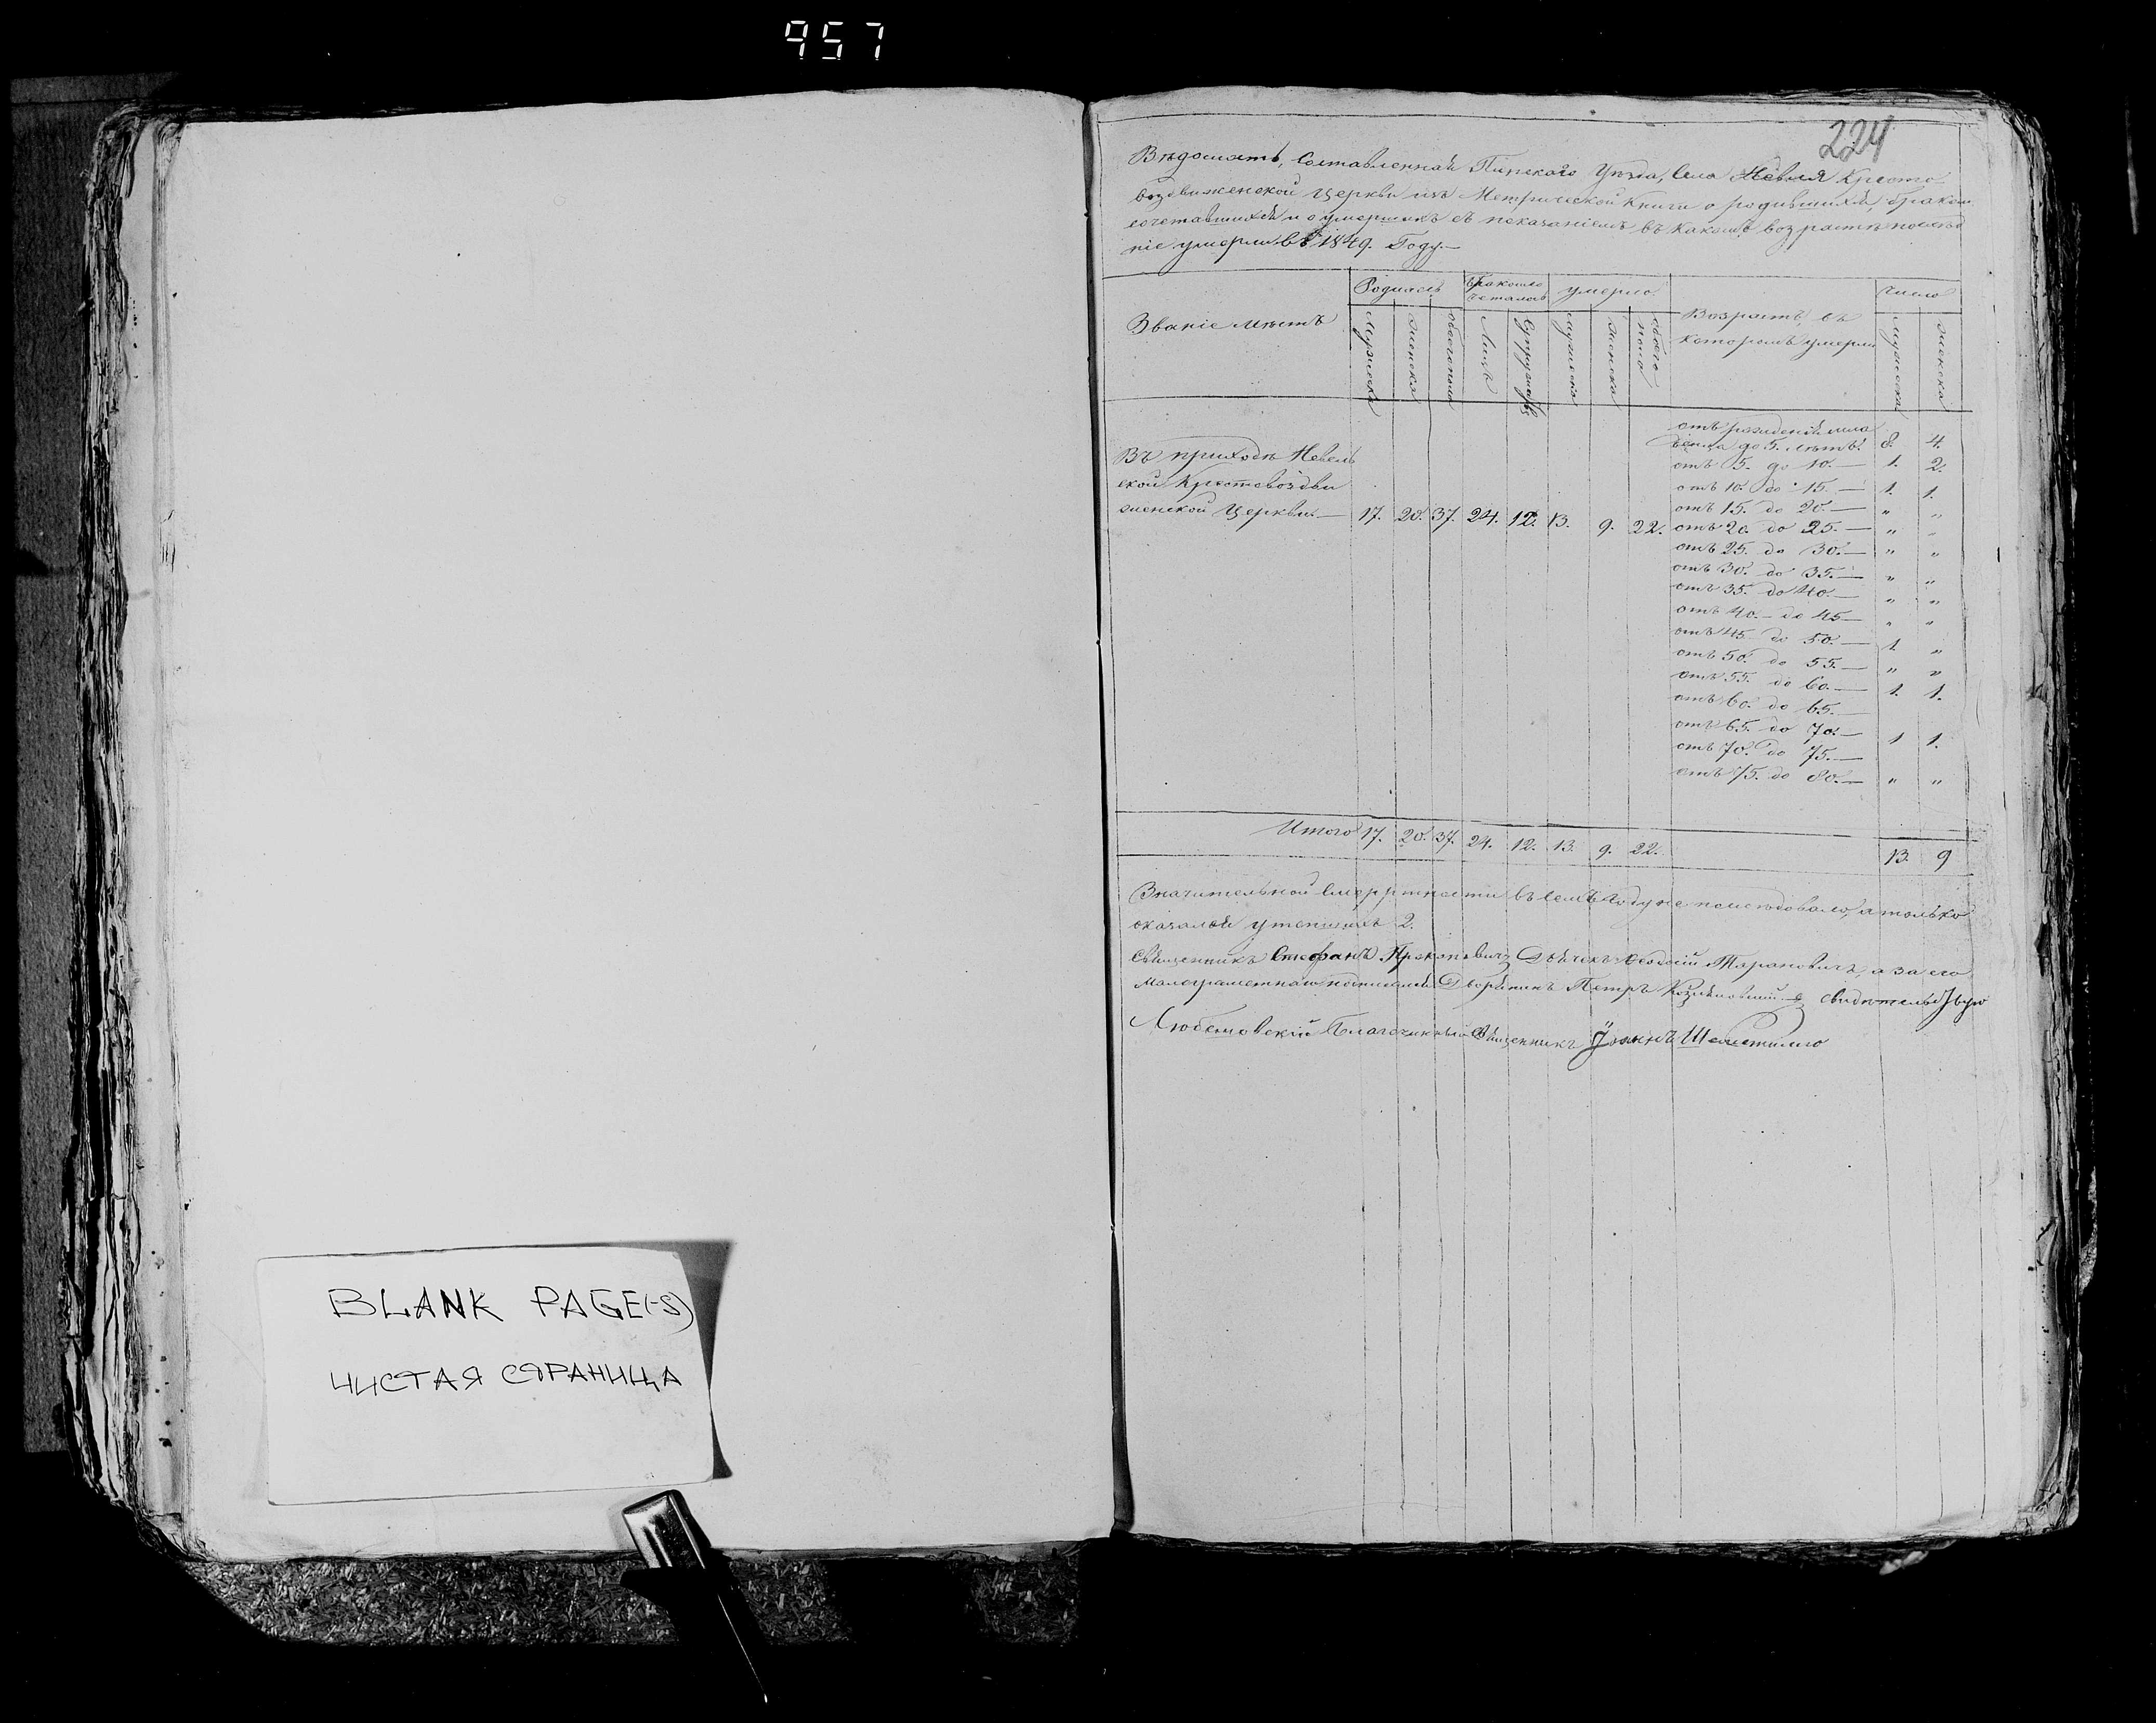 957
BLANK PAGE(-S)
ЧИСТАЯ СТРАНИЦА
224
Вѣдомость, Составленная Пинскаго Уѣзда, Села Невля Кресто
воздвиженской Церкви изъ Метрической Книги о родившихся, бракомъ
сочетавшихся и о умершихъ съ показаніемъ въ какомъ возрастѣ послѣд
ніе умерли въ 1849. Году.—
Званіе мѣстъ
Родилось Бракомъ умерло Возрастъ, въ число
сочеталось которомъ умерли
Мужеска женска обоегопола Лицъ Супружествъ мужеска женска обоего пола мужеска женска
отъ рожденія мла
денца до 5. лѣтъ. 8. 4.
Въ приходѣ Невель отъ 5. до 10.— 1. 2.
ской Крестовоздви отъ 10. до 15.— 1. 1.
женской Церкви.— 17. 20. 37. 24. 12. 13. 9. 22. отъ 15. до 20.— " "
отъ 20. до 25.— " "
отъ 25. до 30.— " "
отъ 30. до 35.— " "
отъ 35. до 40.— " "
отъ 40.— до 45— " "
отъ 45. до 50.— 1. "
отъ 50. до 55.— " "
отъ 55. до 60.— 1. 1.
отъ 60. до 65.—
отъ 65. до 70.— 1 1.
отъ 70. до 75.—
отъ 75. до 80.— " "
Итого 17. 20. 37. 24. 12. 13. 9. 22. 13. 9
Значительной смертности въ семъ году не послѣдовало, а только
оказалось 2.
Священникъ Стефанъ Прокоповичъ Дьячекъ Ѳеодосій Тарановичъ, а за его
малограмотнаго подписался Дворянинъ Петръ свидѣтельствую
Любешовскій Благочинный Священникъ Іоаннъ